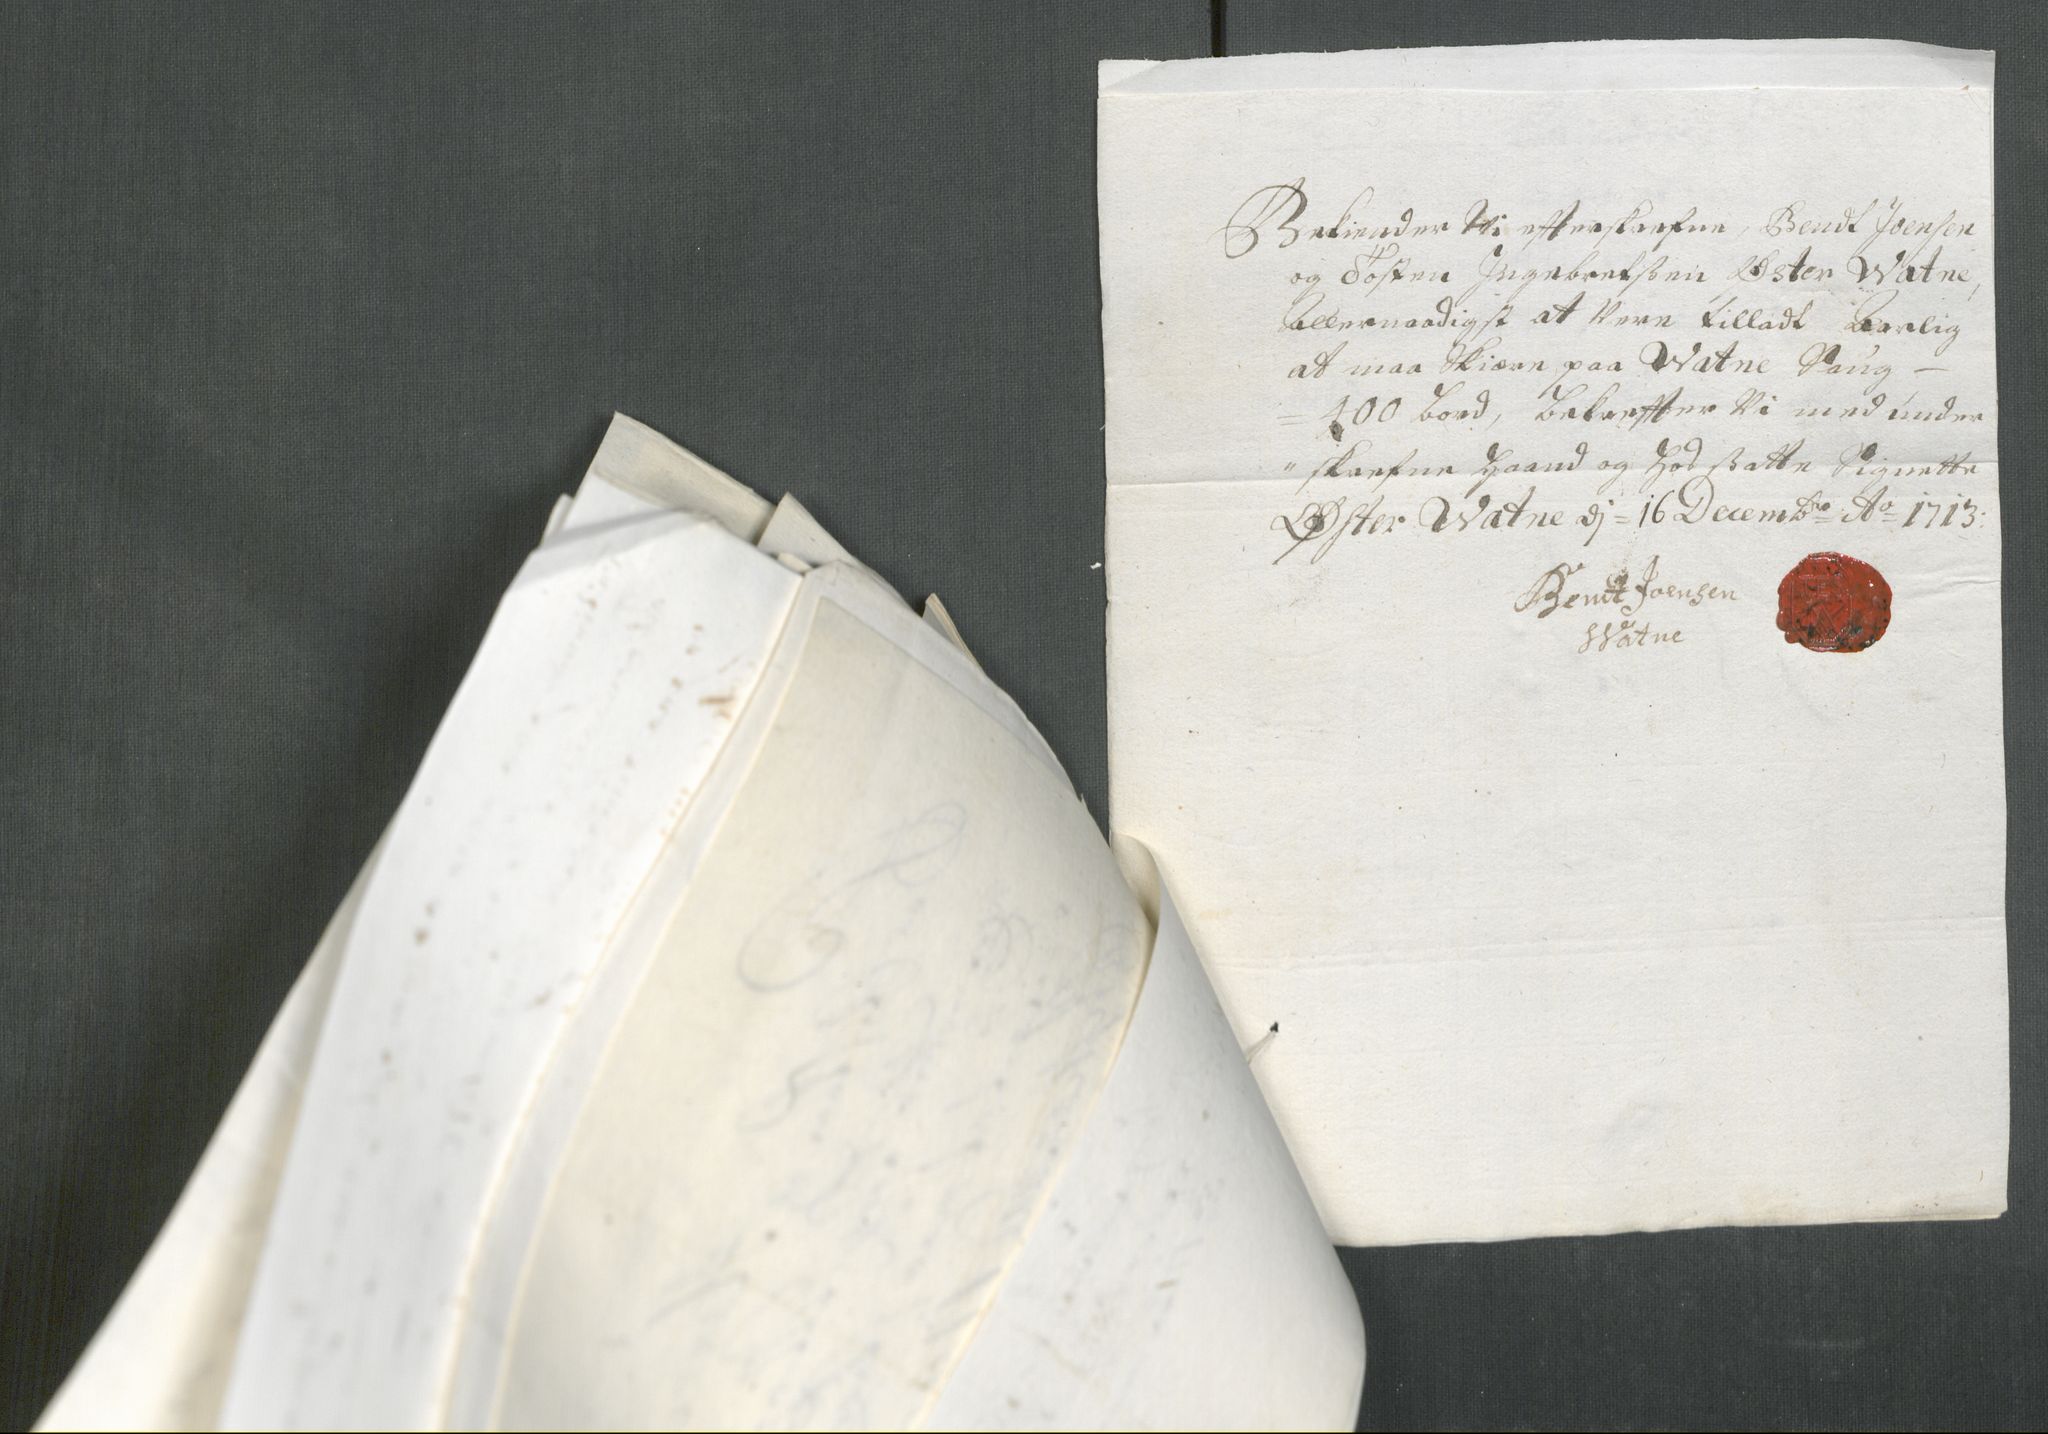 Bekiender Vi effterskrefne, Bendt Joensen
og Tosten Ingebretsen Øster Watne,
allernaadigst at Vere tilladt aarlig
at maa Skiære paa Watne Saug —
= 400 bord, bekreffter Vi med under
" skrefne haand og hos satte Signette
Øster Watne dj = 16 Decembr: Ao 1713:
Bendt Joensen
Watne